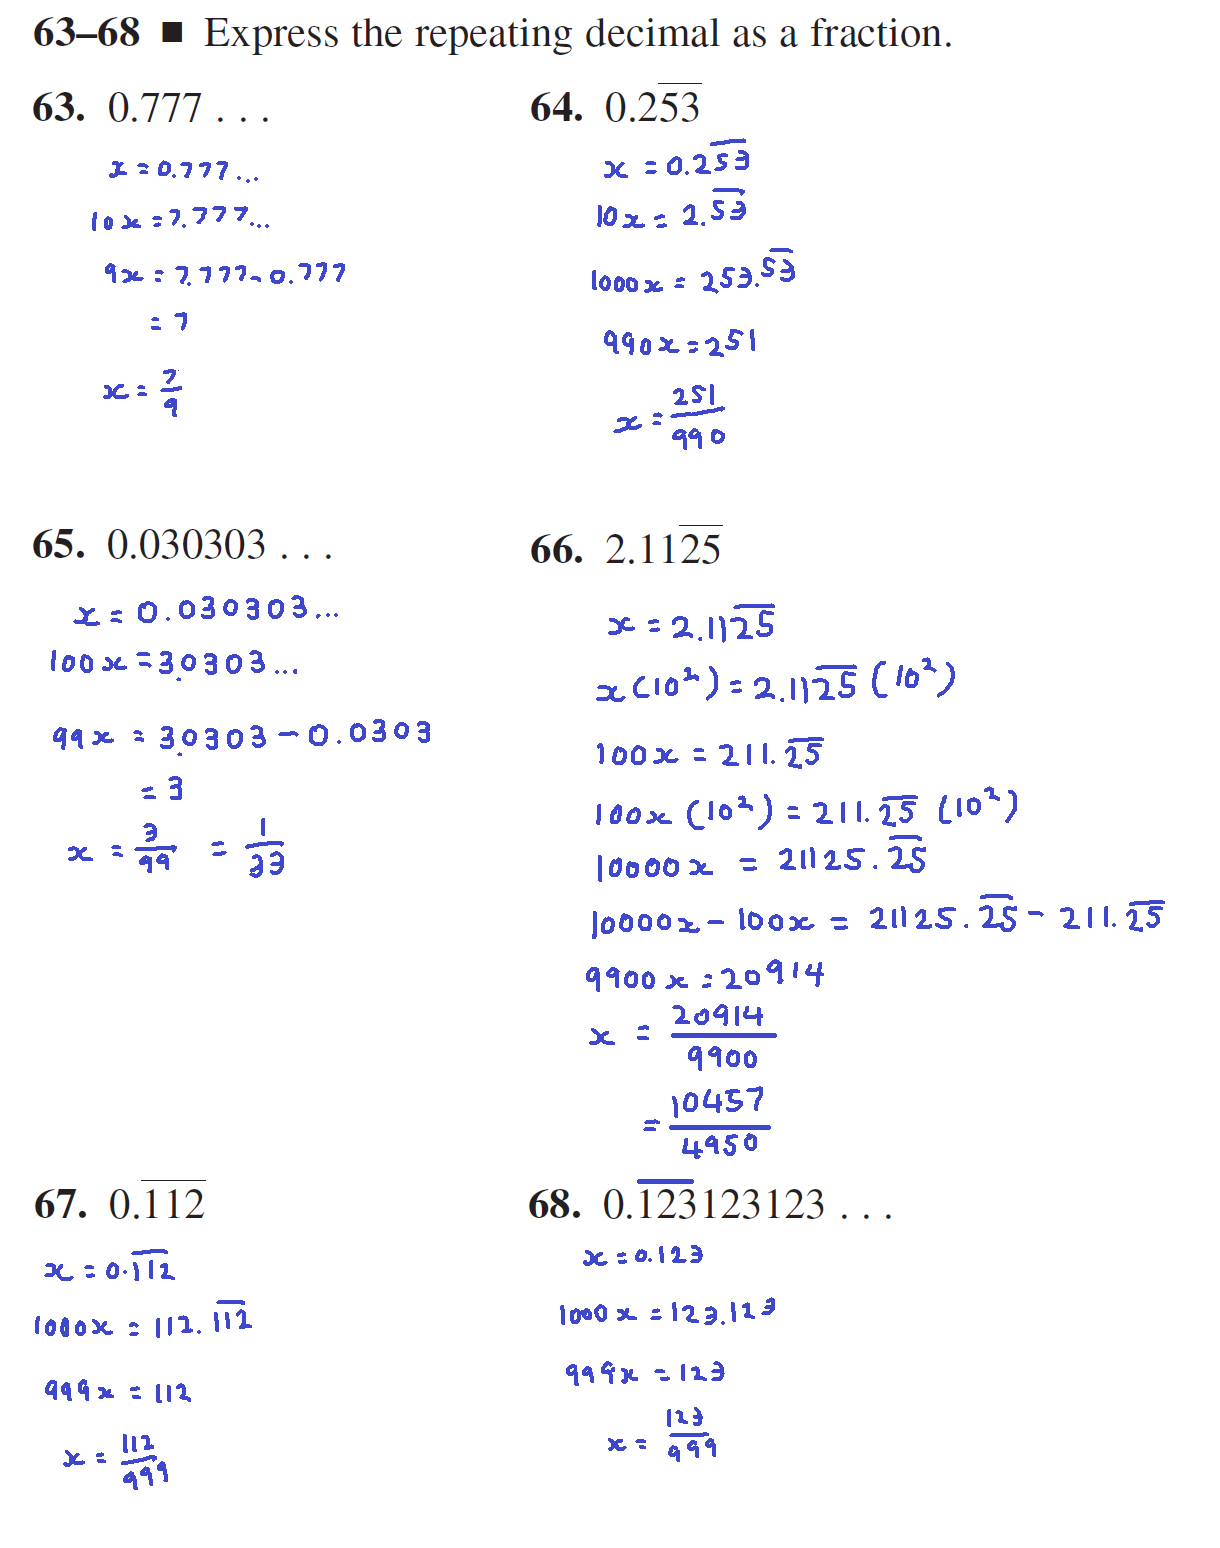 63–68 ■ Express the repeating decimal as a fraction.
63. 0.777 . . .
x = 0.777...
10x = 7.777...
9x = 7.777 - 0.777
= 7
x = 7/9
64. 0.25̅3̅
x = 0.25̅3̅
10x = 2.5̅3̅
1000x = 253.5̅3̅
990x = 251
x = 251/990
65. 0.030303 . . .
x = 0.030303...
100x = 3.0303...
99x = 3.0303 - 0.0303
= 3
x = 3/99 = 1/33
66. 2.112̅5̅
x = 2.112̅5̅
x(10²) = 2.112̅5̅ (10²)
100x = 211.2̅5̅
100x (10²) = 211.2̅5̅ (10²)
10000x = 21125.2̅5̅
10000x - 100x = 21125.2̅5̅ - 211.2̅5̅
9900x = 20914
x = 20914/9900
= 10457/4950
67. 0.1̅1̅2̅
x = 0.1̅1̅2̅
1000x = 112.1̅1̅2̅
999x = 112
x = 112/999
68. 0.1̅2̅3̅123123 . . .
x = 0.123
1000x = 123.123
999x = 123
x = 123/999